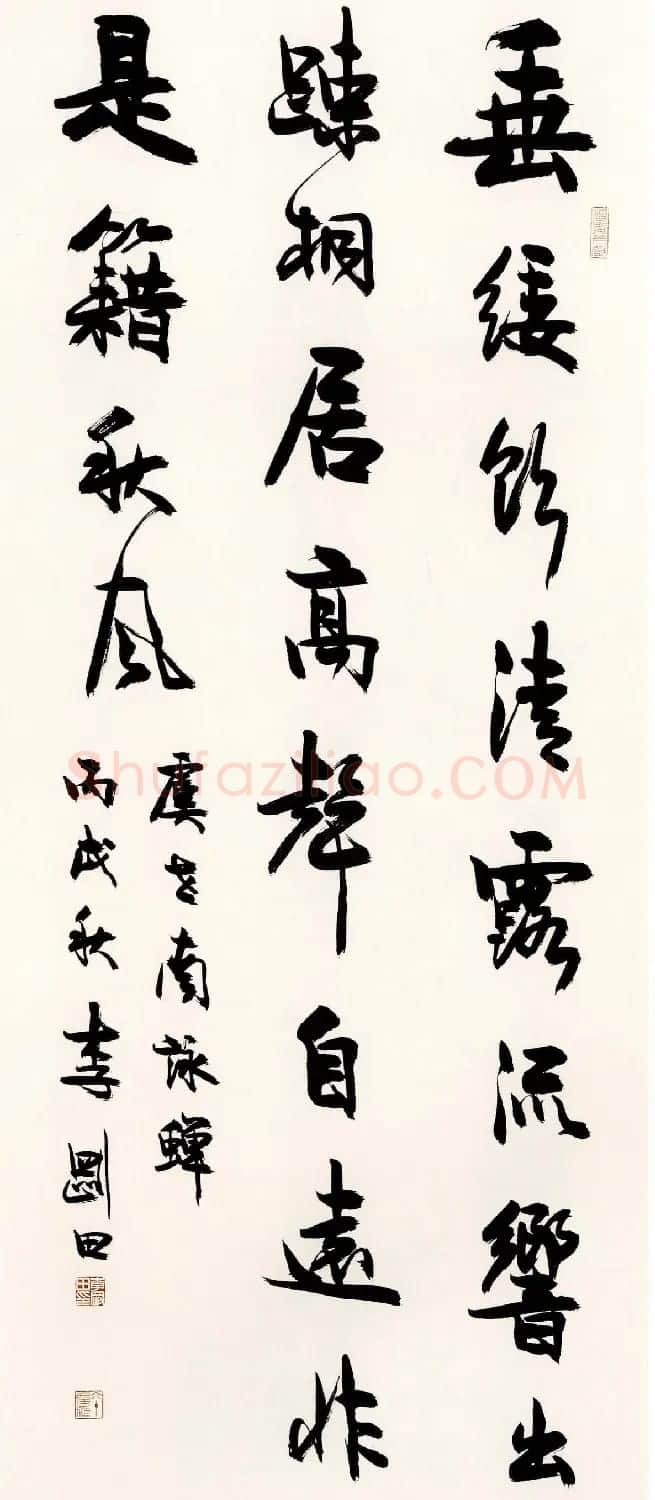 垂緌飲清露流響出
踈桐居高聲自遠非
是籍秋風
虞世南詠蟬
丙戌秋李剛田
Shufaziliao.COM